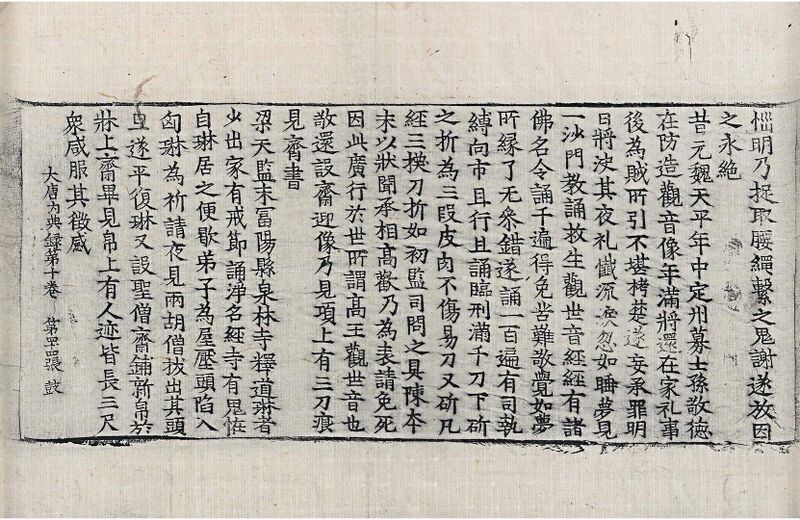 惱明乃捉取腰繩繫之鬼謝遂放因
之永絶
昔元魏天平年中定州募士孫敬德
在防造觀音像年滿將還在家礼事
後為賊所引不堪栲楚遂妄承罪明
日將决其夜礼懺流淚忽如睡夢見
一沙門教誦救生觀世音經經有諸
佛名令誦千遍得免苦難敬覺如夢
所緣了无叅錯遂誦一百遍有司執
縛向市且行且誦臨刑滿千刀下斫
之折為三段皮肉不傷易刀又斫凡
經三換刀折如初監司問之具陳本
末以狀聞承相高歡乃為表請免死
因此廣行於世所謂高王觀世音也
敬還設齋迎像乃見項上有三刀痕
見齊書
梁天監末富陽縣泉林寺釋道琳者
少出家有戒節誦淨名經寺有鬼怪
自琳居之便歇弟子為屋壓頭陷入
匈琳為祈請夜見兩胡僧拔出其頭
旦遂平復琳又設聖僧齋鋪新帛於
牀上齋畢見帛上有人迹皆長三尺
衆咸服其徴感
大唐內典録第十卷 第罒張 鼓